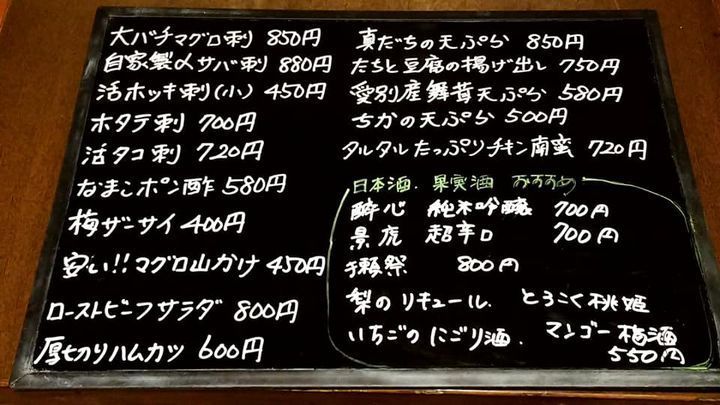 大バチマグロ刺 850円
自家製〆サバ刺 880円
活ホッキ刺(小) 450円
ホタテ刺 700円
活タコ刺 720円
なまこポン酢 580円
梅ザーサイ 400円
安い!!マグロ山かけ 450円
ローストビーフサラダ 800円
厚切りハムカツ 600円
真だちの天ぷら 850円
たちと豆腐の揚げ出し 750円
愛別産舞茸天ぷら 580円
ちかの天ぷら 500円
タルタルたっぷりチキン南蛮 720円
日本酒.果実酒 おすすめ
酔心 純米吟醸 700円
景虎 超辛口 700円
獺祭 800円
梨のリキュール. とろこく桃姫
いちごのにごり酒. マンゴー梅酒
550円